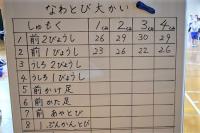 なわとび大かい
しゅもく 1くみ 2くみ 3くみ 4くみ
1 前2びょうし 26 29 30 29
2 前1びょうし 23 26 22 26
3 うしろ2びょうし
4 うしろ1びょうし
5 前かけ足
6 前かた足
7 前あやとび
8 1ぷんかんとび